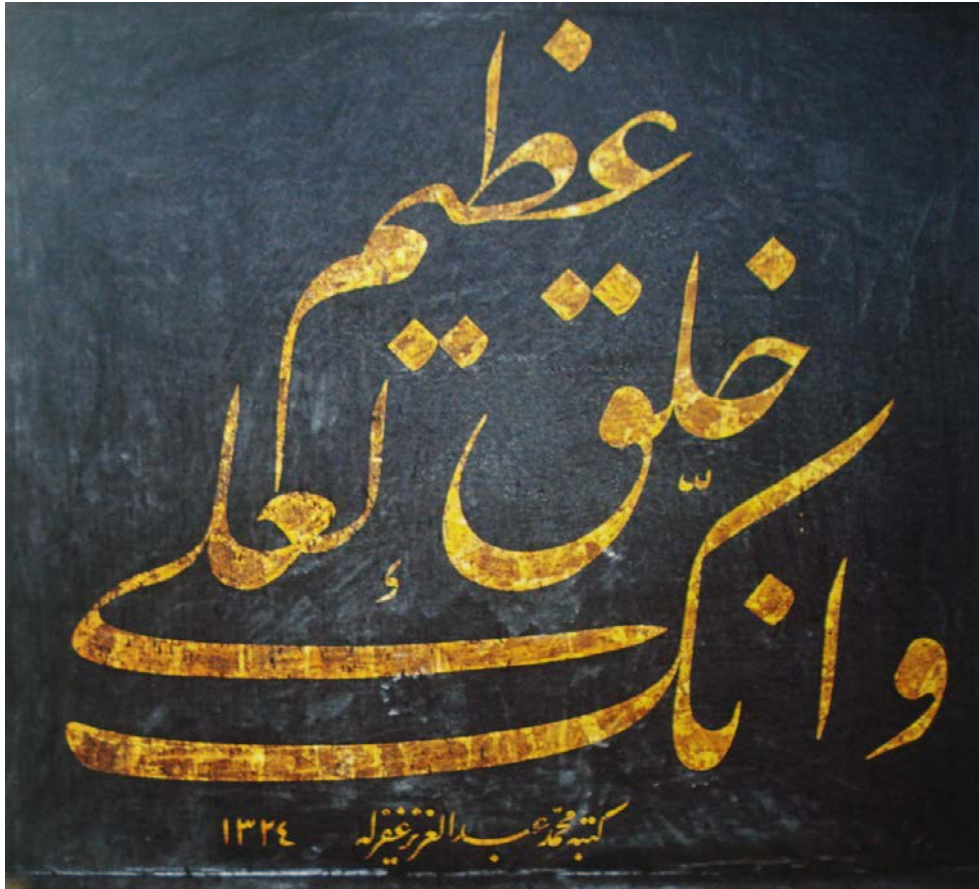 وانّك لعلى
خلق عظيم
كتبه محمّد عبد العزيز غفرله ١٣٢٤